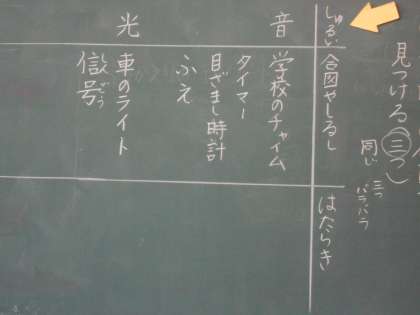 見つける(三つ)
同じ
三つ
バラバラ
しゅるい
合図やしるし
はたらき
音
学校のチャイム
タイマー
目ざまし時計
ふえ
光
車のライト
信号
しんごう